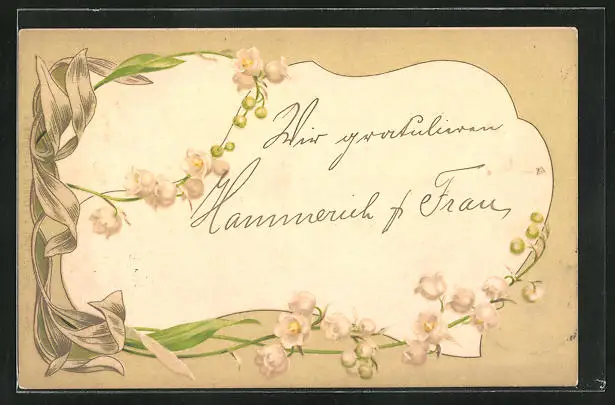 Wir gratulieren
Hammerich & Frau